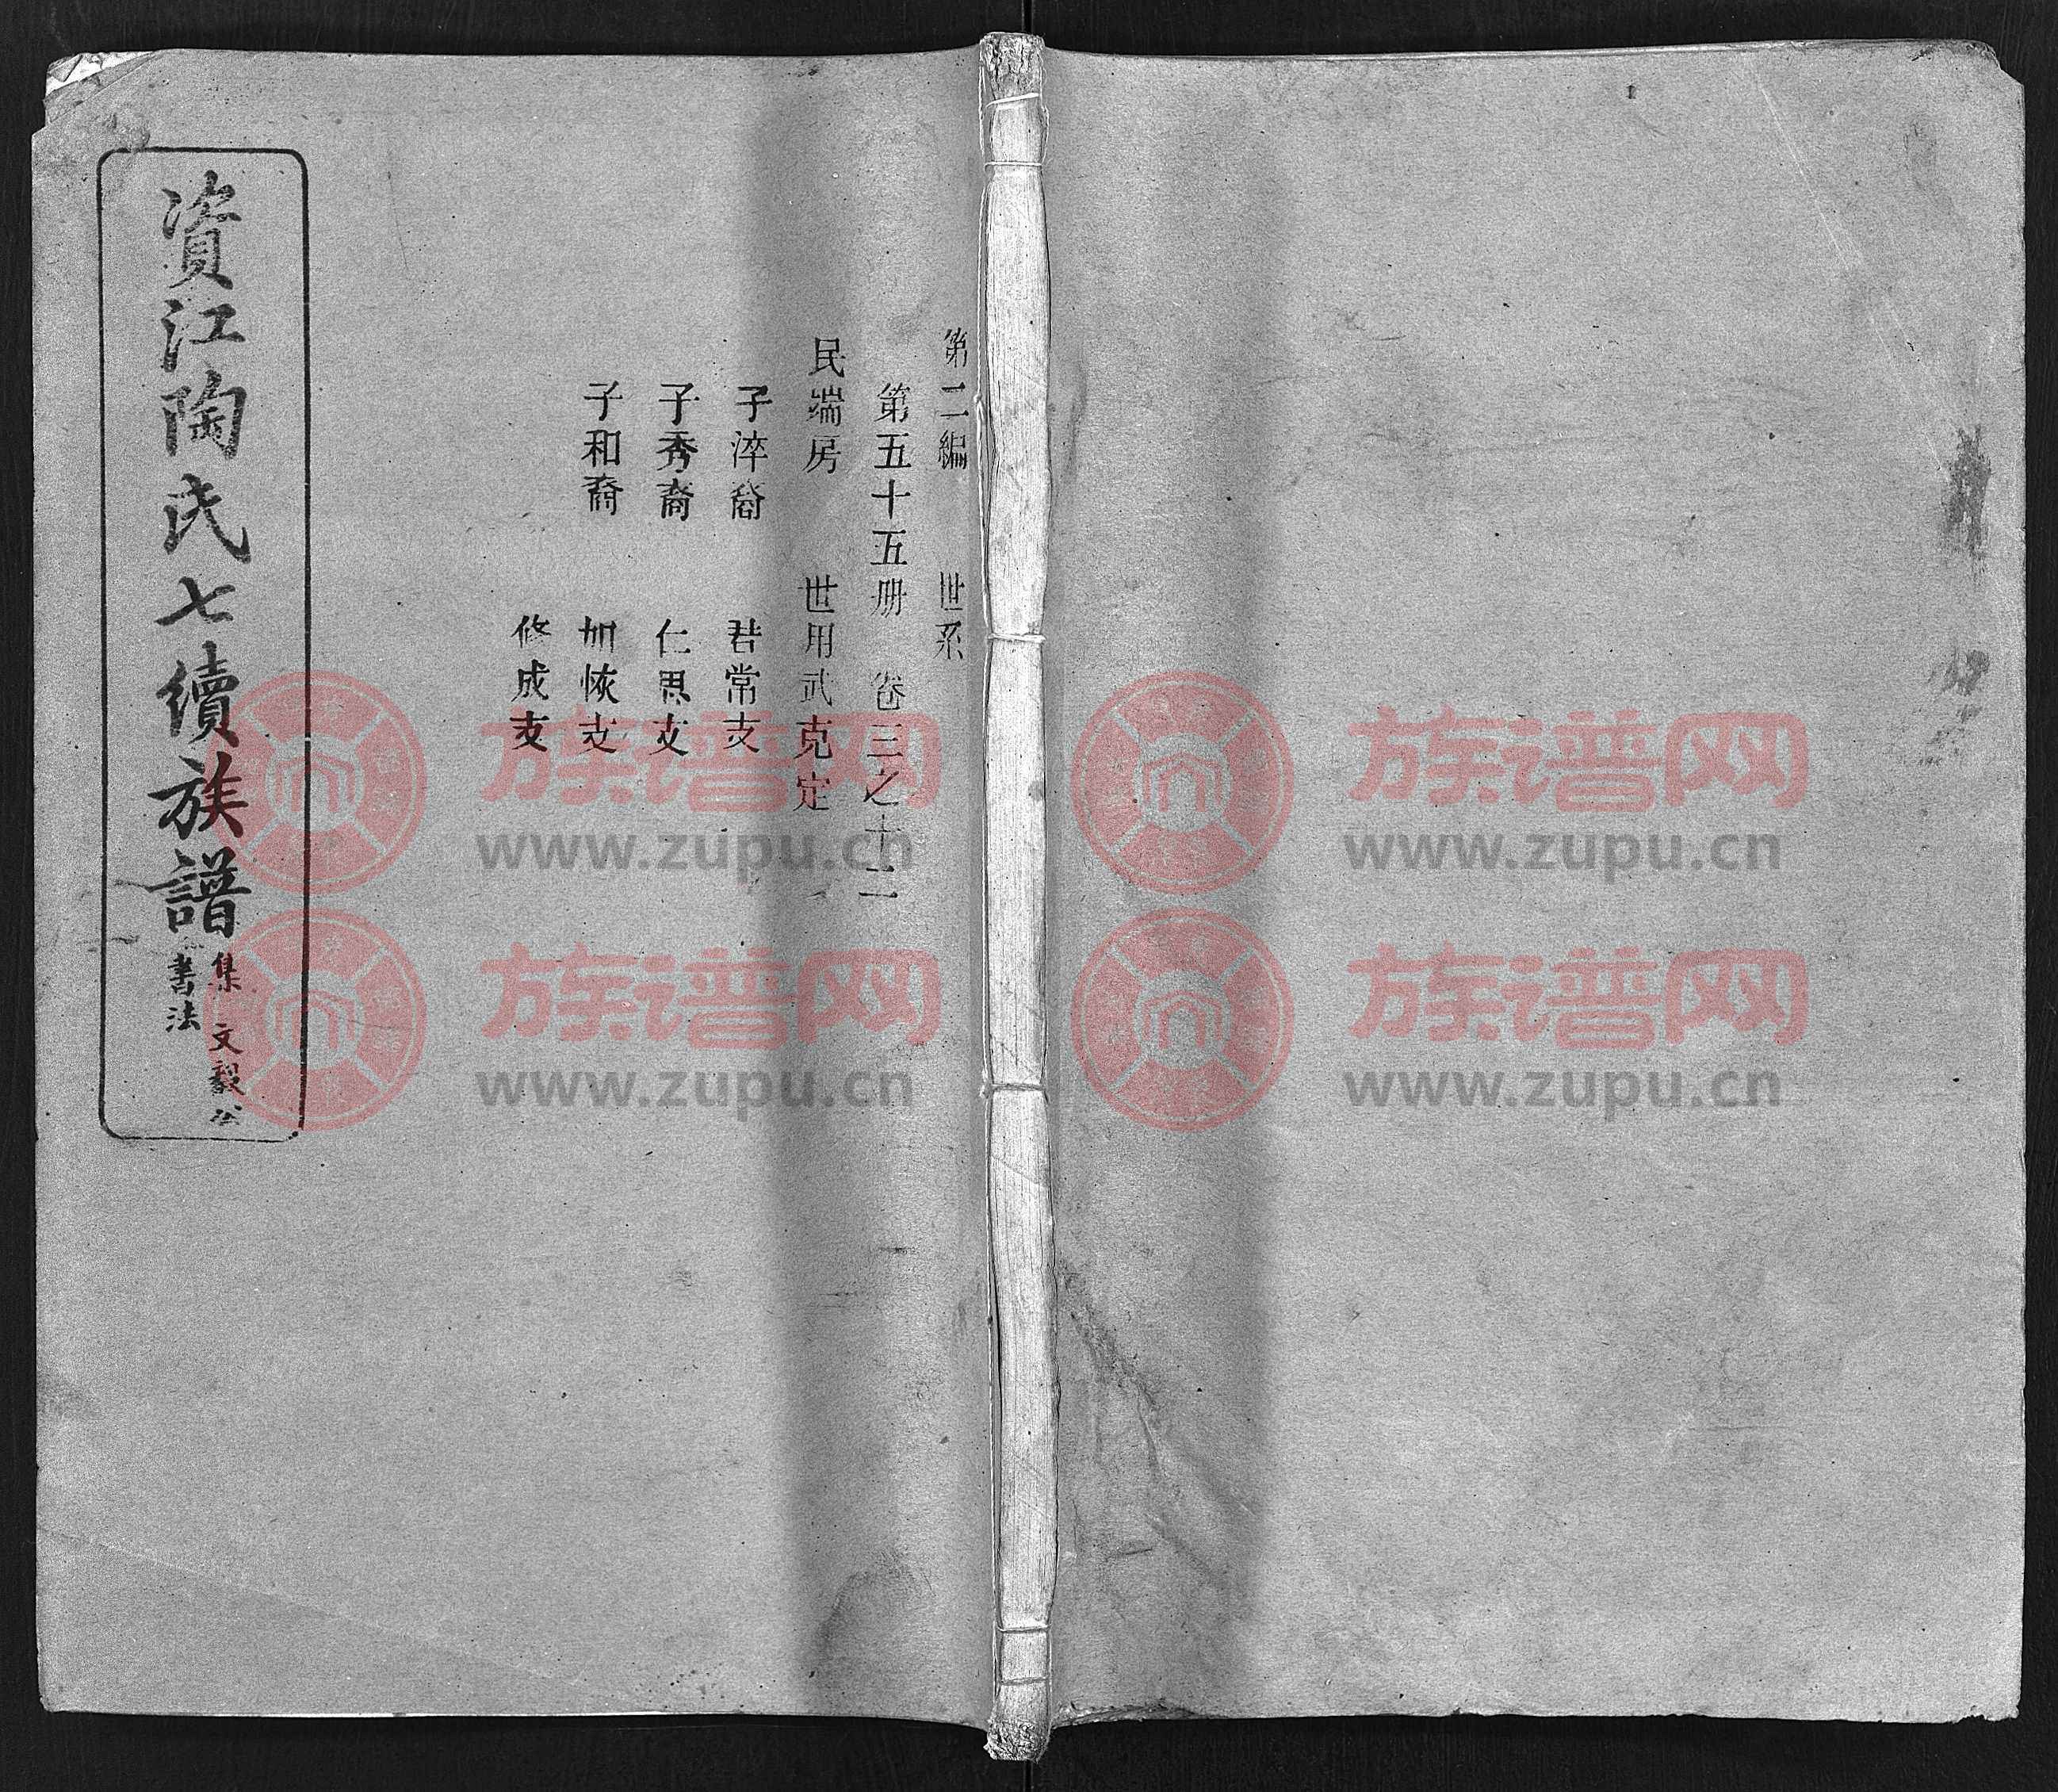 第二編 世系
第五十五册 卷三之十二
民端房 世用武克定
子淬裔 君常支
子秀裔 仁思支
子和裔 加恢支
修成支
資江陶氏七續族譜
集文毅公
書法
族谱网
www.zupu.cn
族谱网
www.zupu.cn
族谱网
www.zupu.cn
族谱网
www.zupu.cn